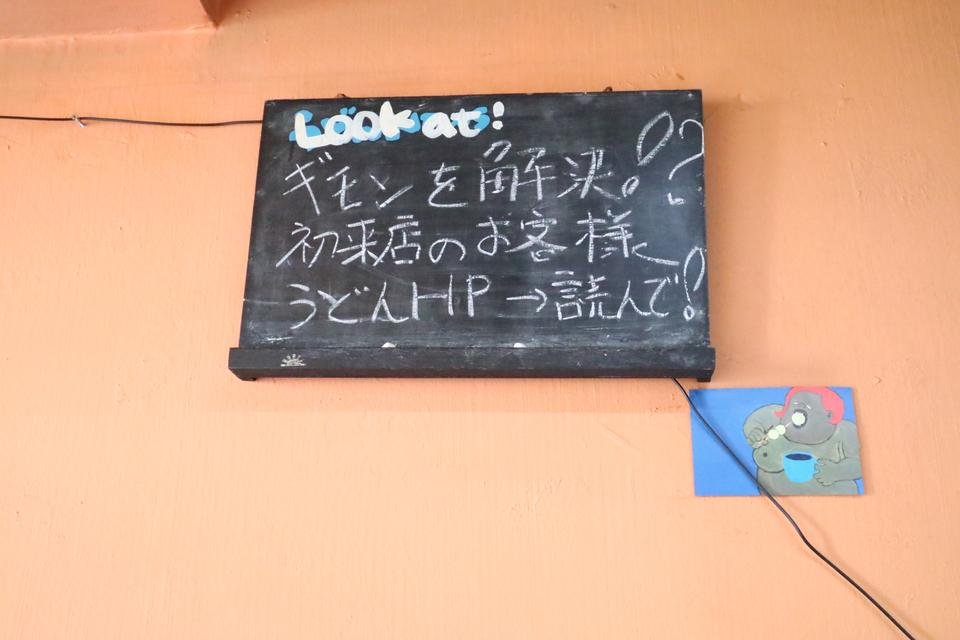 Look at!
ギモンを解決!?
初来店のお客様
うどんHP→読んで!